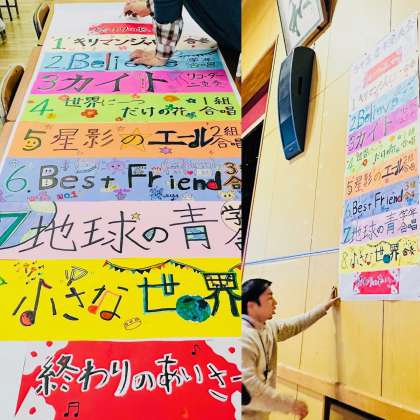 1.キリマンジャロ 合奏
2.Believe 学年合唱
3 カイト リコーダー
4 世界に一つだけの花 1組合唱
5 星影のエール 2組合唱
6.Best Friend 3組合唱
7 地球の青
8 小さな世界
終わりのあいさ
2.Believe
3 カイト
4 世界に一つだけの花
5 星影のエール
6 Best Friend
7 地球の青 合唱
8 小さな世界 合奏